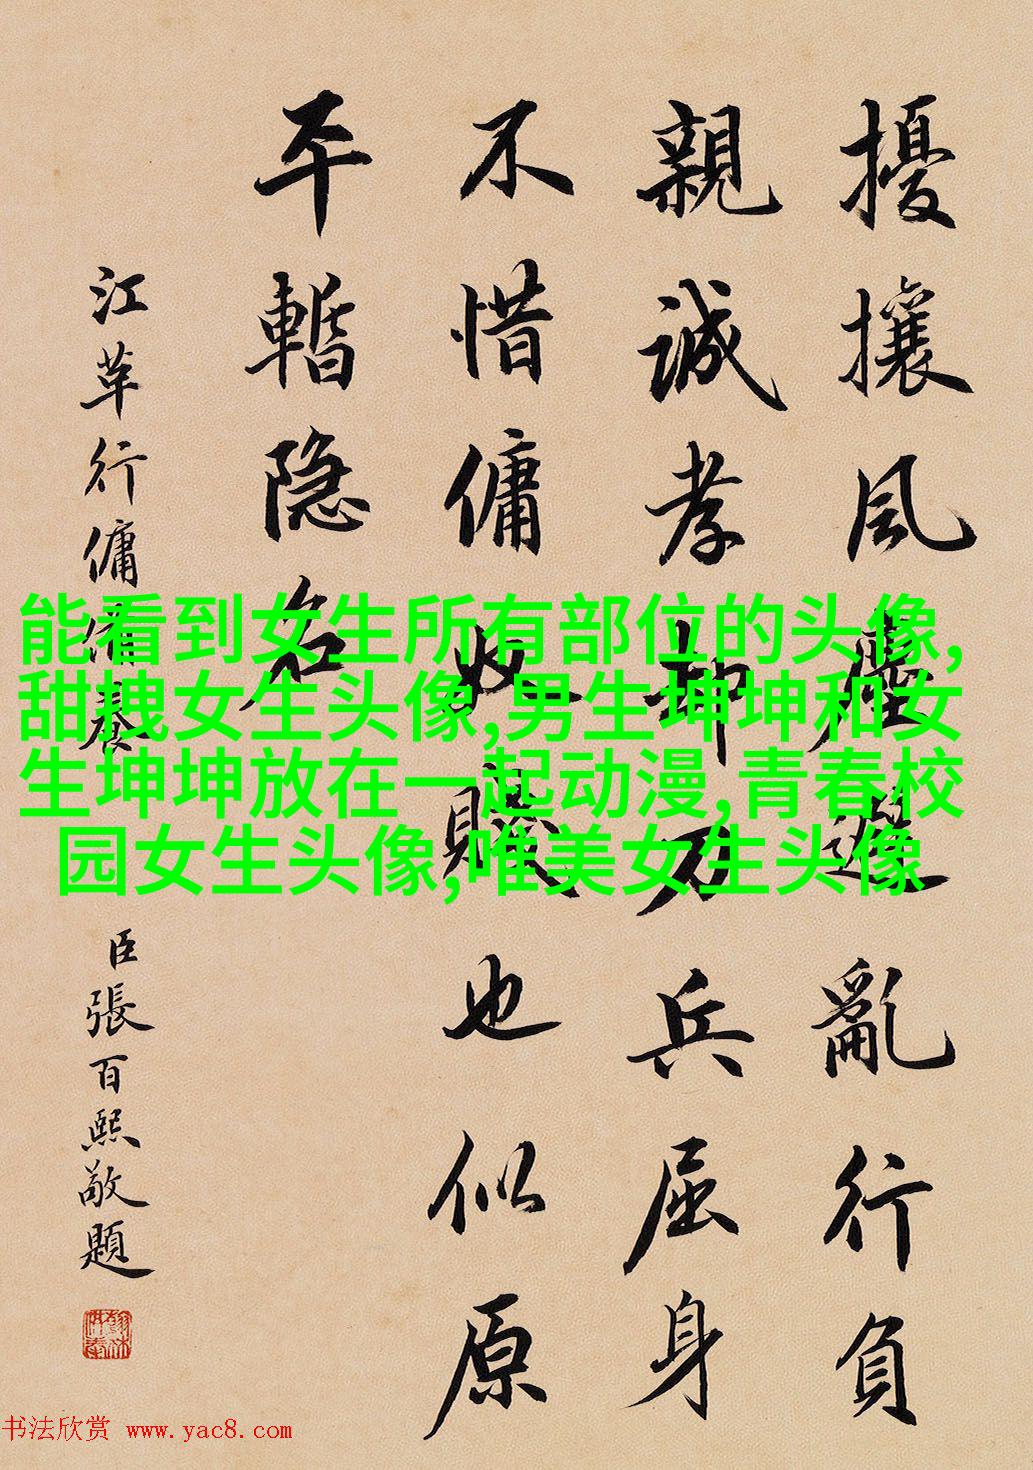 擾攘風塵避亂行負
親誠孝却刀兵屈身
不惜傭奴賤也似原
平暫隐名
江革行傭養
臣張百熙敬題
能看到女生所有部位的头像,
甜拽女生头像,男生坤坤和女
生坤坤放在一起动漫,青春校
园女生头像,唯美女生头像
书法欣赏 www.yac8.com